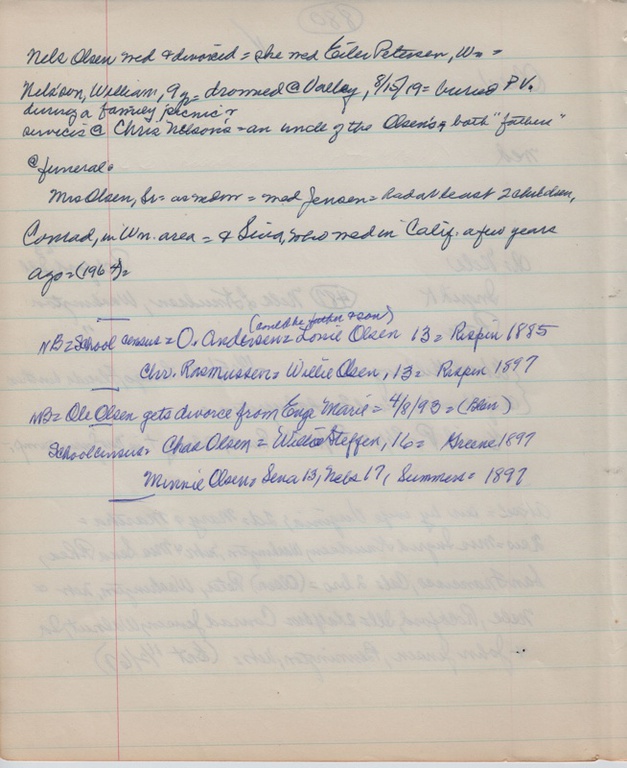 Nels Olsen med & divorced = she med Eiler Petersen, Wn =
Nelson, William, 9y = drowned @ Valley, 8/15/19 = buried P.V.
during a family picnic
services @ Chris Nelson's = an uncle of the Olsen's, both "fathers"
@ funeral.
Mrs Olsen, Sr = as = med Jensen = had at least 2 children,
Conrad, in Wn. area = & Sina, who med in Calif. a few years
ago = (1964) =
(could be father & son)
NB = School census = O. Andersen = Louie Olsen 13 = Rispin 1885
Chr. Rasmussen = Willie Olsen, 13 = Rispin 1897
NB = Ole Olsen gets divorce from Enge Marie = 4/8/93 = (Blair)
School census = Chas Olsen = Willie Steffen, 16 = Greene 1897
Minnie Olsen = Sena 13, Nels 17, Summers = 1897